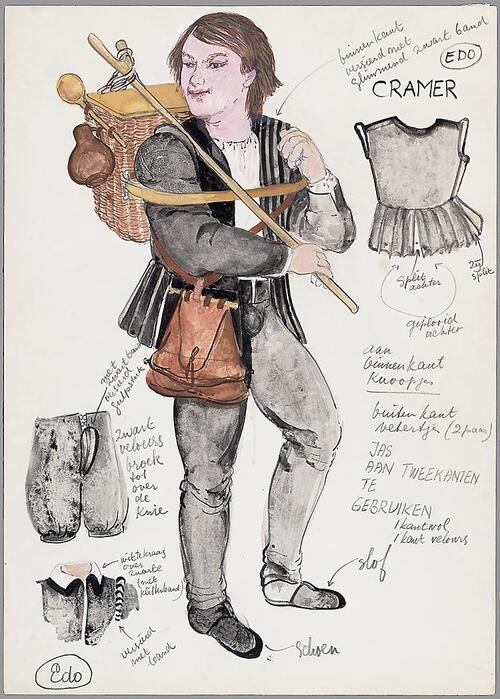 binnenkant
versierd met
glimmend zwart band
EDO
CRAMER
Split
achter
zij
split
geplooid
achter
aan
binnenkant
knoopjes
buitenkant
vetertje (2 paar)
JAS
AAN TWEEKANTEN
TE
GEBRUIKEN
1 kant wol
1 kant velours
slof
schoen
met
zwart band
versierd
gulpstuk
zwart
velours
broek
tot
over
de
knie
witte kraag
over
zwarte
(met
klittenband)
versierd
met
band
Edo